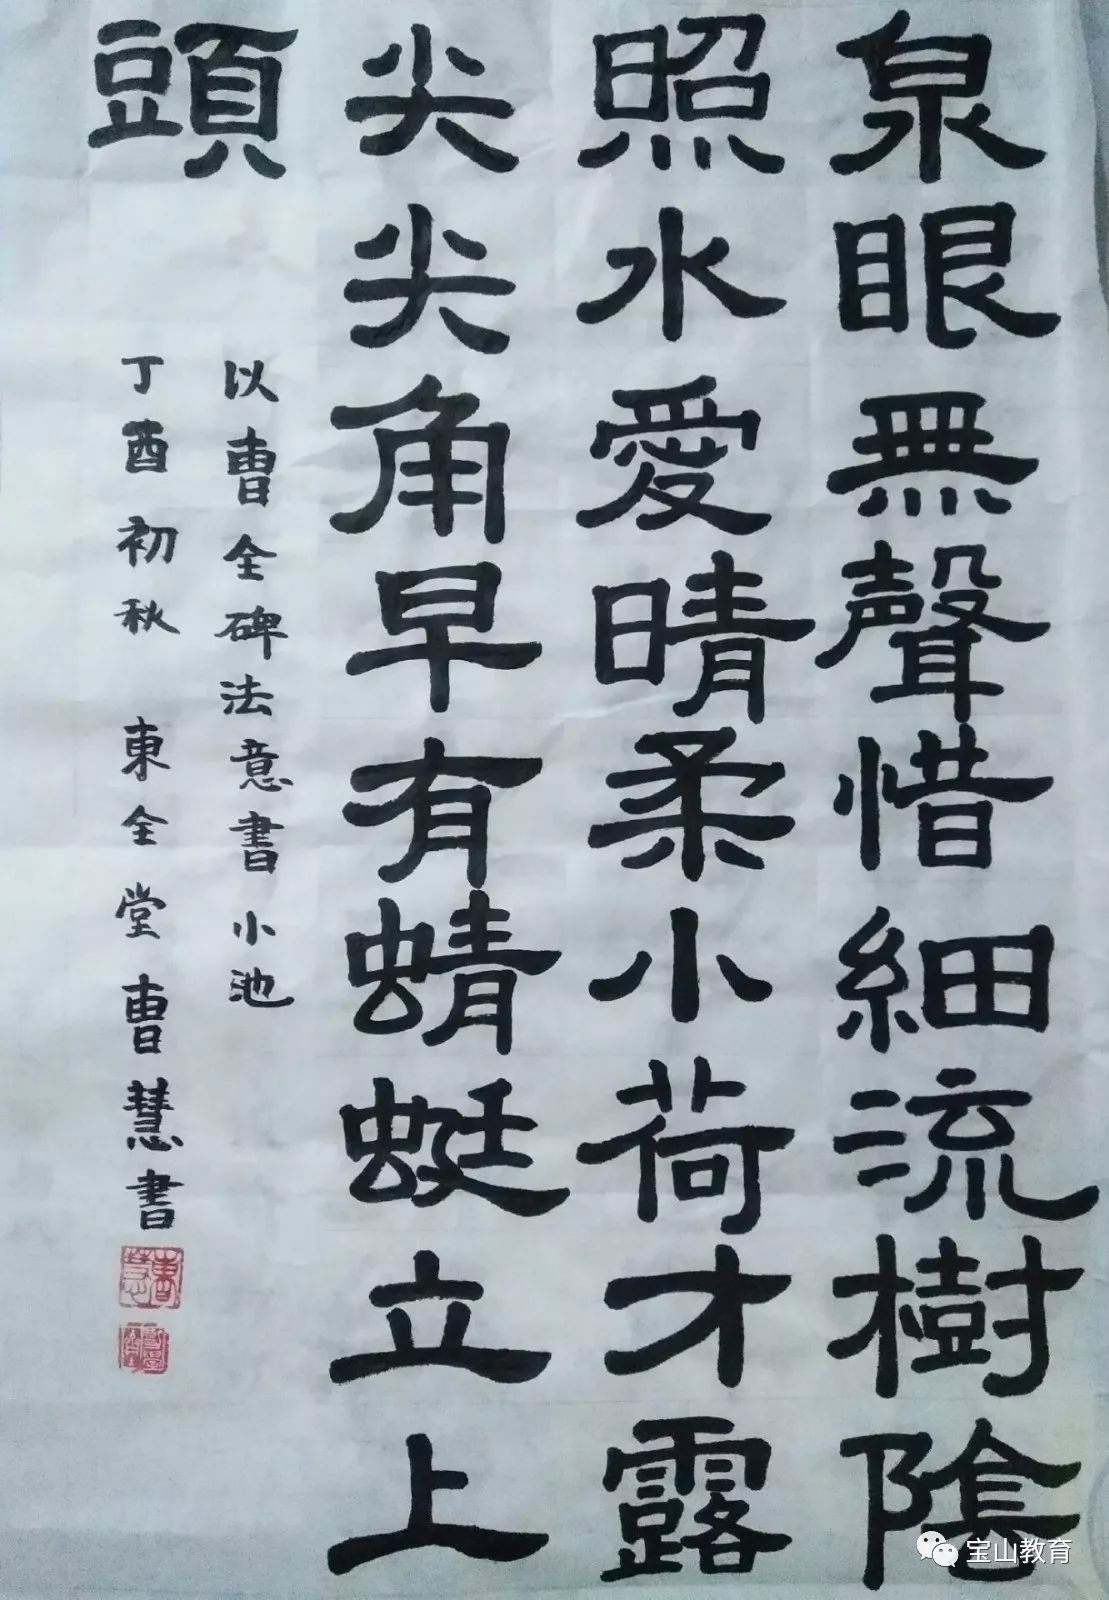 泉眼無聲惜細流樹隂
照水愛晴柔小荷才露
尖尖角早有蜻蜓立上
頭
以曹全碑法意書小池
丁酉初秋 東全堂曹慧書
曹慧
宝山教育